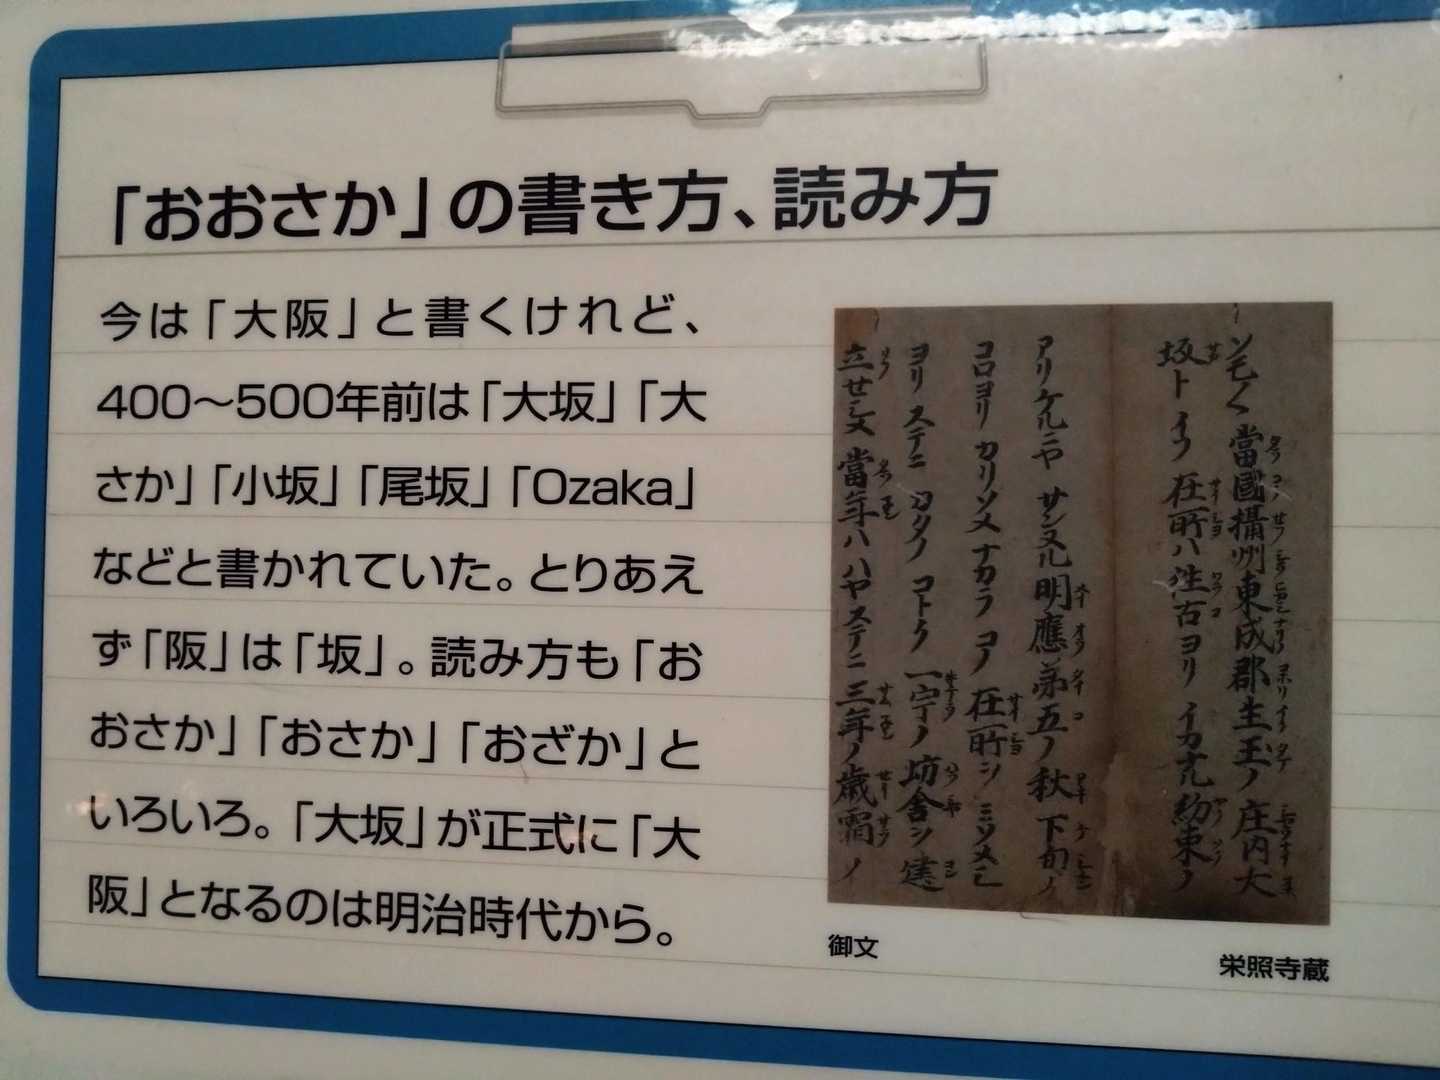 「おおさか」の書き方、読み方
今は「大阪」と書くけれど、
400〜500年前は「大坂」「大
さか」「小坂」「尾坂」「Ozaka」
などと書かれていた。とりあえ
ず「阪」は「坂」。読み方も「お
おさか」「おさか」「おざか」と
いろいろ。「大坂」が正式に「大
阪」となるのは明治時代から。
當國攝州東成郡生玉ノ庄内大
坂トイフ在所ハ往古ヨリイカナル約束ノ
アリケルニヤサンヌル明應第五ノ秋下旬ノ
コロヨリカリソメナカラコノ在所ヲミソメシ
ヨリステニカタノコトク一宇ノ坊舎ヲ建
立セシメ當年ハハヤステニ三年ノ歳霜ノ
御文
栄照寺蔵